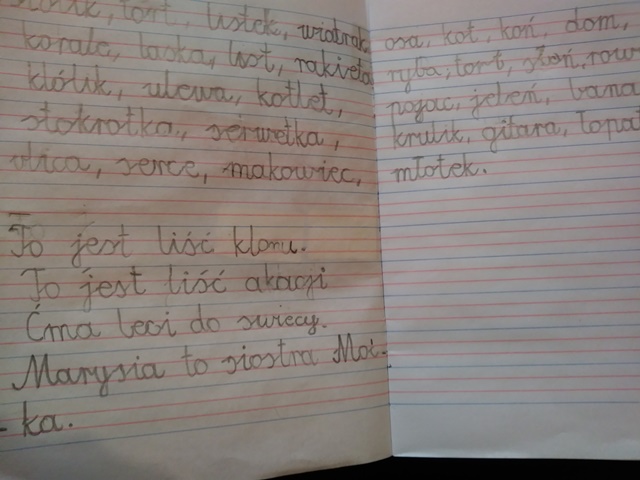 tort, listek, wiatrak,
korale, laska, but, rakieta
klólik, ulewa, kotlet,
stokrotka, serwetka,
ulica, serce, makowiec,
To jest liść klonu.
To jest liść akacji
Ćma leci do swiecy.
Marysia to siostra Moł-
- ka.
osa, kot, koń, dom,
ryba, tort, słoń, row
pajac, jeleń, bana
krulik, gitara, łopat
młotek.